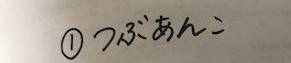 ① つぶあんこ